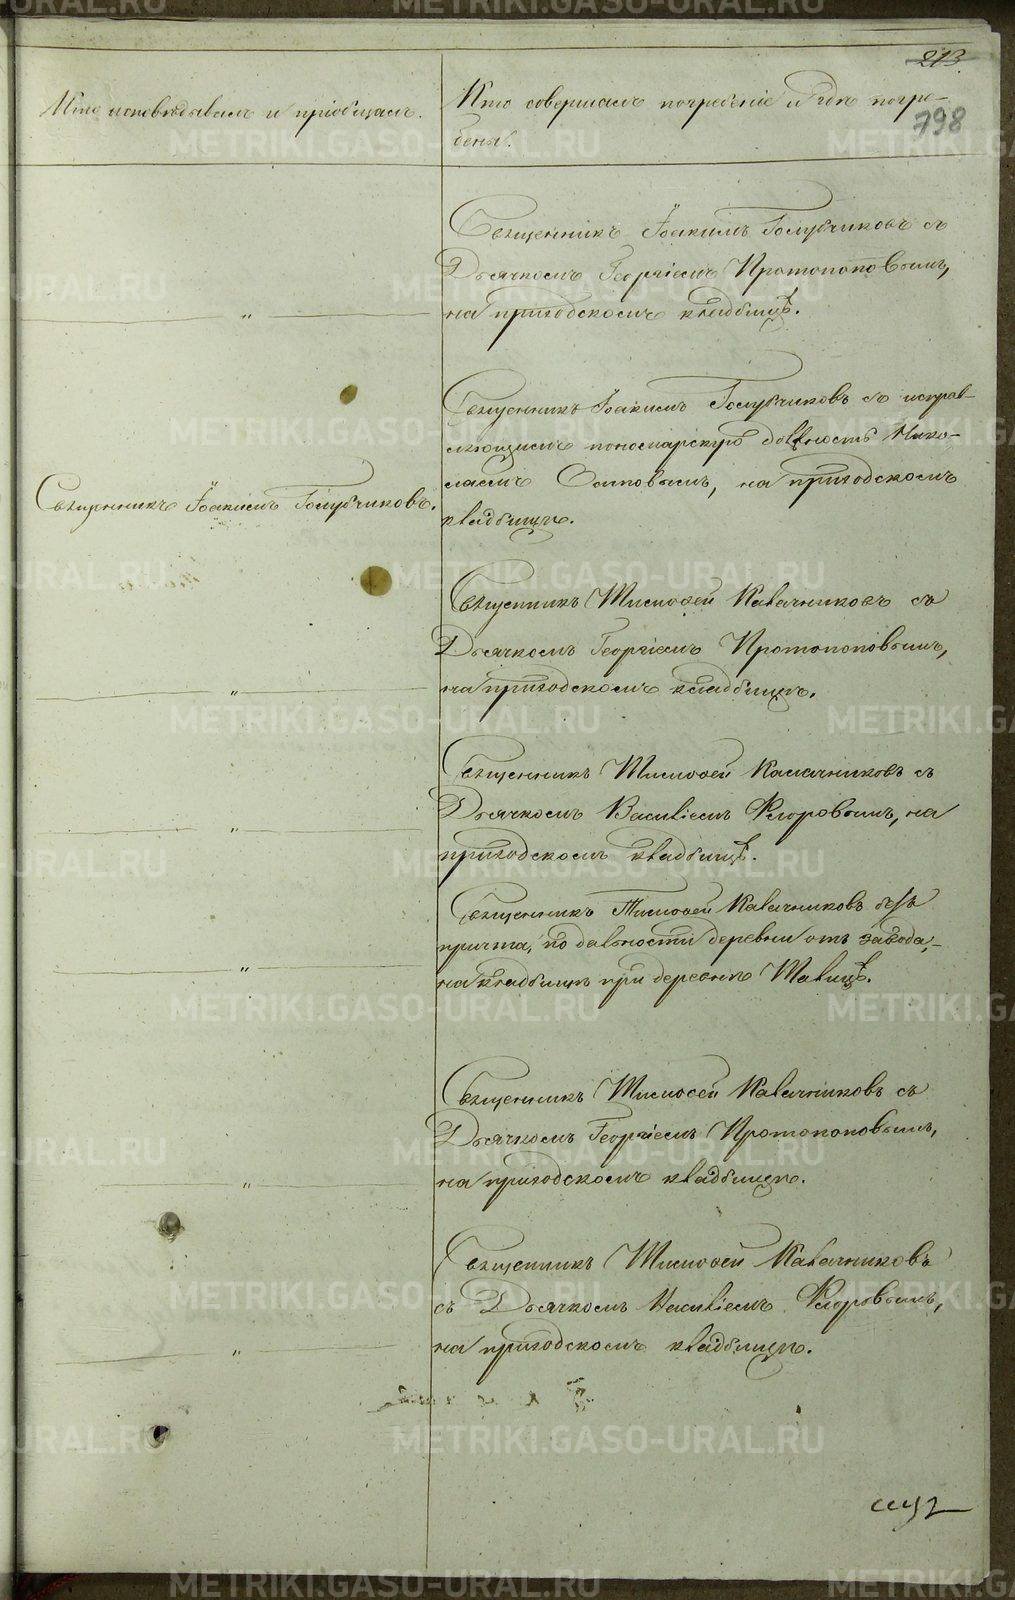 213.
798
Кто исповѣдывалъ и пріобщалъ.
Кто совершалъ погребеніе и гдѣ погре-
бены.
Священникъ Іоакимъ Голубчиковъ съ
Дьячкомъ Георгіемъ Протопоповымъ,
на приходскомъ кладбищѣ.
"
Священникъ Іоакимъ Голубчиковъ съ исправ-
ляющимъ пономарскую должность Нико-
лаемъ
на приходскомъ
кладбищѣ.
Священникъ Іоакимъ Голубчиковъ.
Священникъ Тимофей Калачниковъ съ
Дьячкомъ Георгіемъ Протопоповымъ,
на приходскомъ кладбищѣ.
"
Священникъ Тимофей Калачниковъ съ
Дьячкомъ Василіемъ Флоровымъ, на
приходскомъ кладбищѣ.
"
Священникъ Тимофей Калачниковъ безъ
причта, по дальности деревни отъ завода,
на кладбищѣ при деревнѣ
"
Священникъ Тимофей Калачниковъ съ
Дьячкомъ Георгіемъ Протопоповымъ,
на приходскомъ кладбищѣ.
"
Священникъ Тимофей Калачниковъ
съ Дьячкомъ Василіемъ Флоровымъ,
на приходскомъ кладбищѣ.
"
METRIKI.GASO-URAL.RU